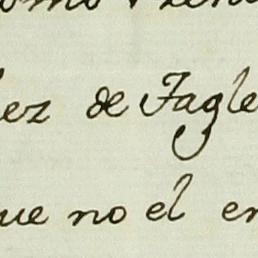 ez de Tagle
ue no el en